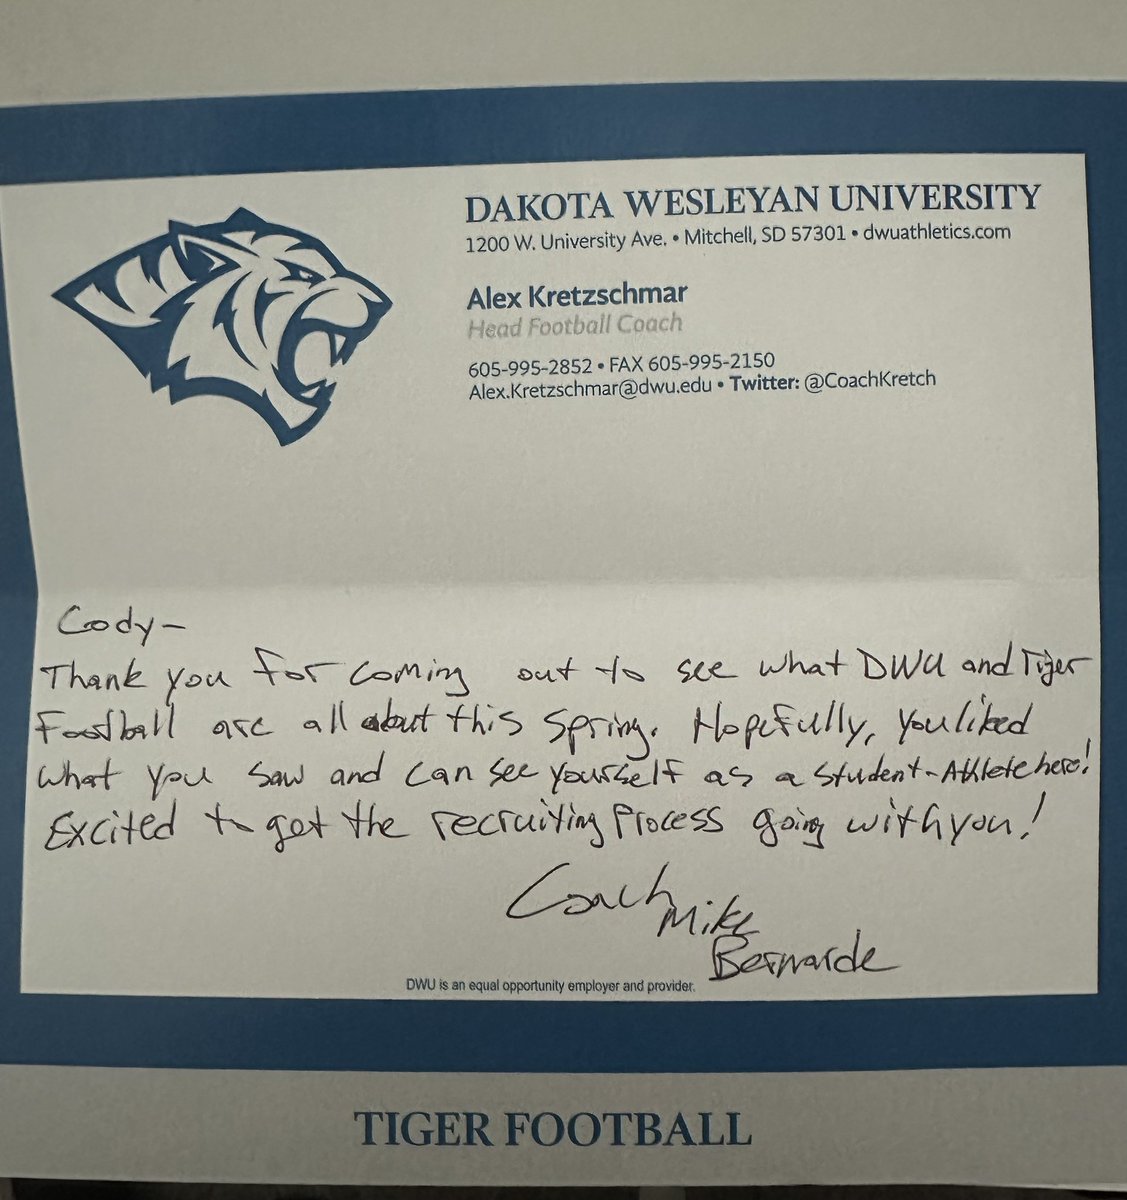 DAKOTA WESLEYAN UNIVERSITY
1200 W. University Ave. • Mitchell, SD 57301 • dwuathletics.com
Alex Kretzschmar
Head Football Coach
605-995-2852 • FAX 605-995-2150
Alex.Kretzschmar@dwu.edu • Twitter: @CoachKretch
Cody-
Thank you for coming out to see what DWU and Tiger
Football are all about this Spring. Hopefully, you liked
what you saw and can see yourself as a student-Athlete here!
Excited to get the recruiting Process going with you!
Coach
Mike
Bernarde
DWU is an equal opportunity employer and provider.
TIGER FOOTBALL